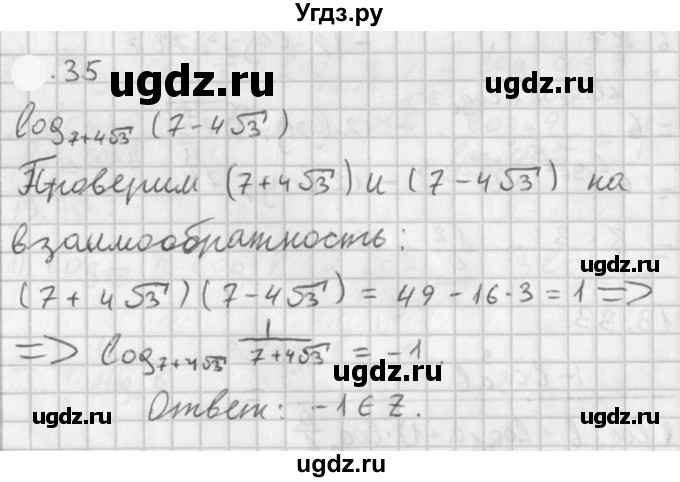 Угдз.ру
.35
ugdz.ru
ugdz.ru
log₇₊₄√₃ (7 - 4√3)
Проверим (7 + 4√3) и (7 - 4√3) на
взаимообратность:
ugdz.ru
(7 + 4√3)(7 - 4√3) = 49 - 16·3 = 1 =>
=> log₇₊₄√₃ 1/(7 + 4√3) = -1.
ugdz.ru
Ответ: -1 ∈ Z.
ugdz.ru
ugdz.ru
ugdz.ru